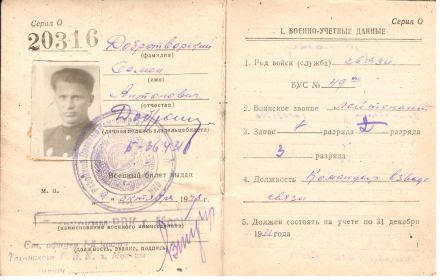 Серия О
20316
Добротворский
(фамилия)
Семен
(имя)
Антонович
(отчество)
(личная подпись владельца билета)
Военный билет выдан
октября
М. П.
(наименование военного комиссариата)
(должность, звание, подпись)
Таганского Р.В.К. г. Москвы
Серия О
I. ВОЕННО-УЧЕТНЫЕ ДАННЫЕ
1. Род войск (службы) связи
ВУС №
2. Воинское звание Лейтенант
3. Запас 1 разряда 2 разряда
3 разряда
4. Должность Командир взвода
связи
5. Должен состоять на учете по 31 декабря
19 года